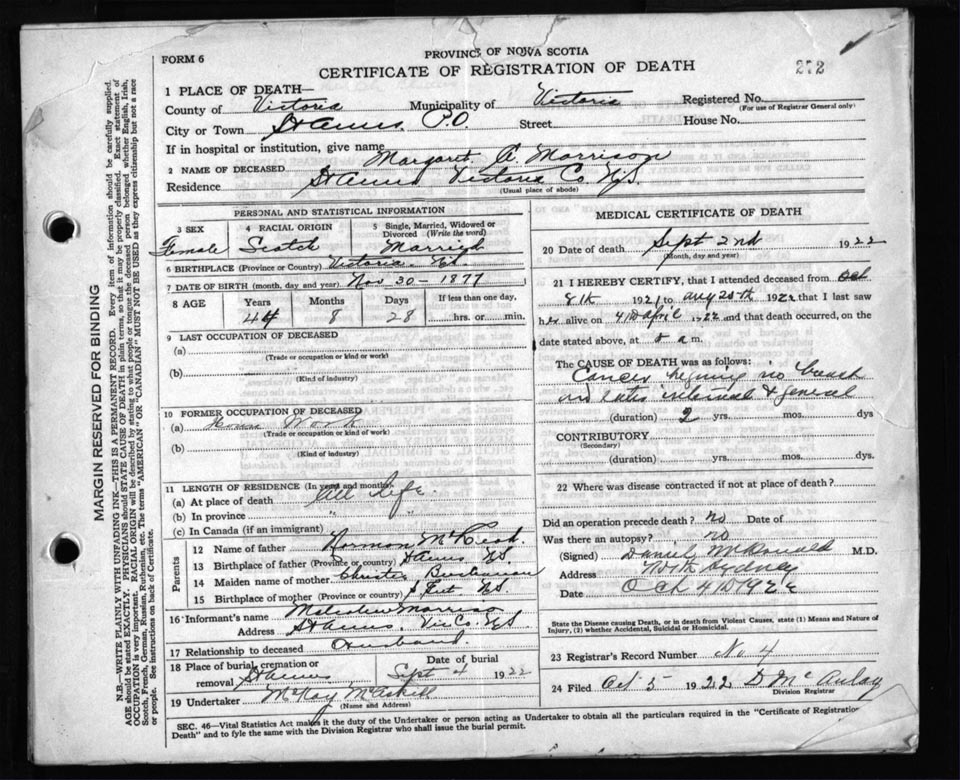 FORM 6
PROVINCE OF NOVA SCOTIA
CERTIFICATE OF REGISTRATION OF DEATH
272
1 PLACE OF DEATH—
County of Victoria Municipality of Victoria Registered No.
(For use of Registrar General only)
City or Town St Anns P.O. Street House No.
If in hospital or institution, give name
2 NAME OF DECEASED Margaret A. Morrison
Residence St Anns Victoria Co. N.S.
(Usual place of abode)
PERSONAL AND STATISTICAL INFORMATION
3 SEX 4 RACIAL ORIGIN 5 Single, Married, Widowed or Divorced (Write the word)
Female Scotch Married
6 BIRTHPLACE (Province or Country) Victoria N.S.
7 DATE OF BIRTH (month, day and year) Nov 30 - 1877
8 AGE Years Months Days If less than one day,
44 8 28 hrs. or min.
9 LAST OCCUPATION OF DECEASED
(a)
(Trade or occupation or kind or work)
(b)
(Kind of industry)
10 FORMER OCCUPATION OF DECEASED
(a) House Work
(Trade or occupation or kind of work)
(b)
(Kind of industry)
11 LENGTH OF RESIDENCE (In years and months)
(a) At place of death All Life
(b) In province " "
(c) In Canada (if an immigrant)
Parents
12 Name of father Norman McLeod
13 Birthplace of father (Province or Country) St Anns NS
14 Maiden name of mother
15 Birthplace of mother (Province or country) NS.
16 Informant's name Malcolm Morrison
Address St Anns Vic Co. NS
17 Relationship to deceased Husband
18 Place of burial, cremation or removal St Anns Date of burial Sept 4 1922
19 Undertaker McKay McAskill
(Name and Address)
MEDICAL CERTIFICATE OF DEATH
20 Date of death Sept 2nd 1922
(Month, day and year)
21 I HEREBY CERTIFY, that I attended deceased from Oct
8th 1921 to Aug 20th 1922 that I last saw
her alive on 4th April 1922 and that death occurred, on
date stated above, at a m.
The CAUSE OF DEATH was as follows:
Cancer in breast
internal & general
(duration) 2 yrs. mos. dys
CONTRIBUTORY
(Secondary)
(duration) yrs. mos. dys.
22 Where was disease contracted if not at place of death?
Did an operation precede death? no Date of
Was there an autopsy? no
(Signed) Daniel McDonald M.D.
Address North Sydney
Date Oct 4th 1922
State the Disease causing Death, or in death from Violent Causes, state (1) Means and Nature of
Injury, (2) whether Accidental, Suicidal or Homicidal.
23 Registrar's Record Number No 4
24 Filed Oct 5 1922 D McAulay
Division Registrar
SEC. 46—Vital Statistics Act makes it the duty of the Undertaker or person acting as Undertaker to obtain all the particulars required in the "Certificate of Registration
Death" and to fyle the same with the Division Registrar who shall issue the burial permit.
MARGIN RESERVED FOR BINDING
N.B.—WRITE PLAINLY WITH UNFADING INK—THIS IS A PERMANENT RECORD. Every item of information should be carefully supplied.
AGE should be stated EXACTLY. PHYSICIANS should STATE CAUSE OF DEATH in plain terms, so that it may be properly classified. Exact statement of
OCCUPATION is very important. RACIAL ORIGIN will be described by stating to what people or tongue the deceased person belonged, whether English, Irish,
Scotch, French, German, Russian, Ruthenian, etc. The terms "AMERICAN" OR "CANADIAN" MUST NOT BE USED as they express citizenship but not a race
or people. See instructions on back of Certificate.